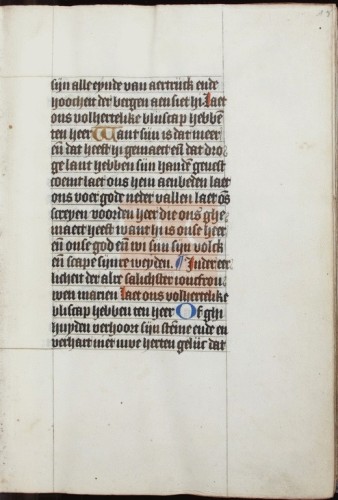 sijn alle eynde van aertrijck ende
hoocheit der bergen aensiet hi Laet
ons volhertelike bliscap hebbē
ten heer Want sijn is dat meer
eñ dat heeft hi gemaect eñ dat dro
ge lant hebben sijn handē gevest
Coemt laet ons hem aenbeden laet
ons voer gode neder vallen laet ōs
screyen voor den heer die ons ghe
maect heeft want hi is onse heer
eñ onse god eñ wi sijn sijn volck
eñ scape sijnre weyden. In der eer
licheit der alre salichster joncfrou
wen marien Laet ons volhertelike
bliscap hebben ten heer Of ghi
huyden verhoort sijn stēme ende en
verhart niet uwe herten gelijc dat